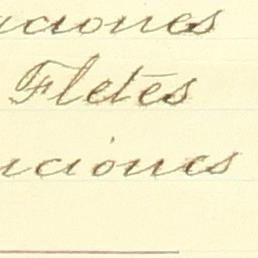 aciones
Fletes
uciones